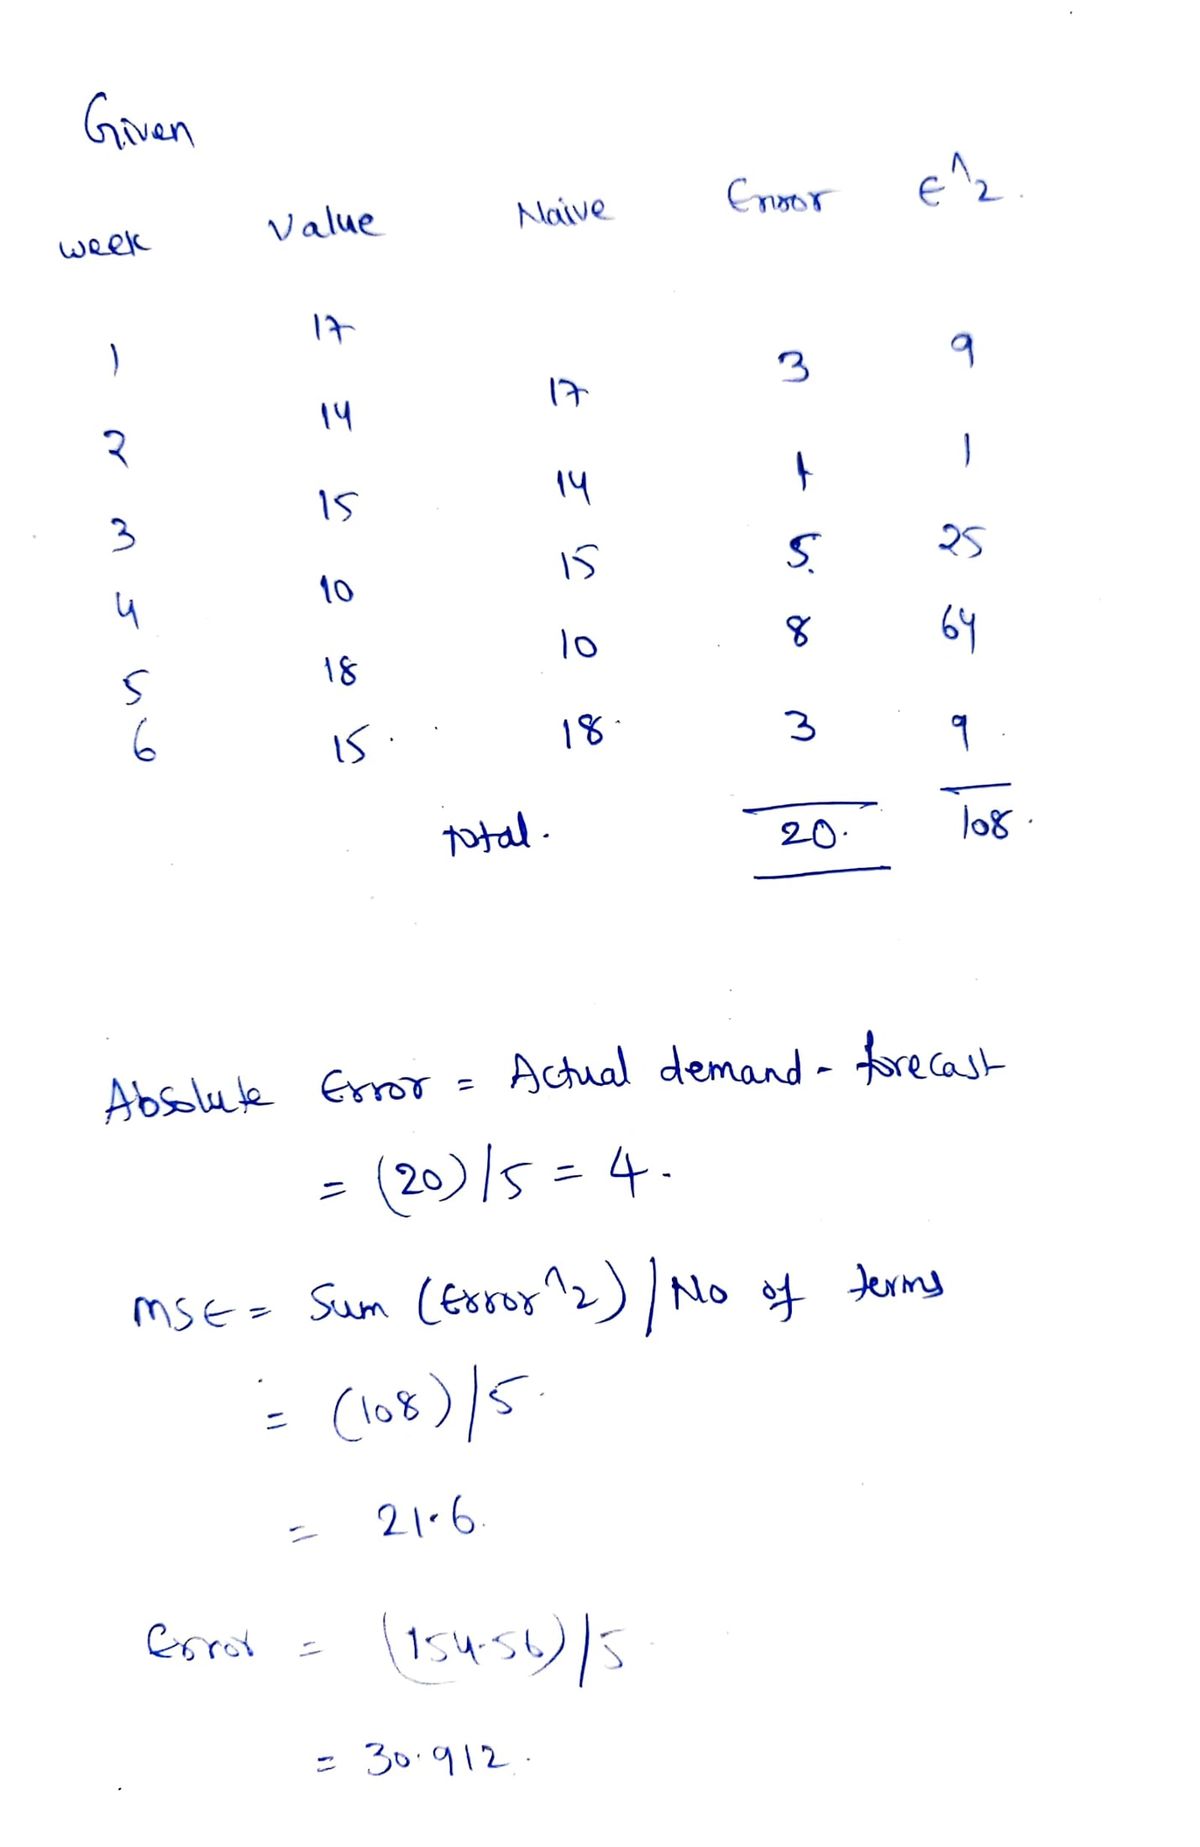 Given
week Value Naive Error E^2.
1 17
2 14 17 3 9
3 15 14 1 1
4 10 15 5. 25
5 18 10 8 64
6 15. 18. 3 9
total. 20. 108.
Absolute Error = Actual demand - forecast
= (20)/5 = 4.
MSE = Sum (Error^2) / No of terms
= (108)/5.
= 21.6.
Error = (154.56)/5
= 30.912.